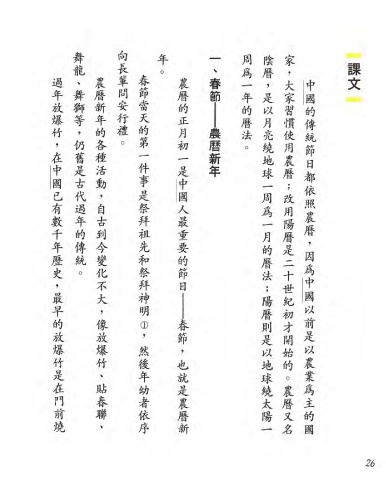 課文
中國的傳統節日都依照農曆，因爲中國以前是以農業爲主的國
家，大家習慣使用農曆；改用陽曆是二十世紀初才開始的。農曆又名
陰曆，是以月亮繞地球一周爲一月的曆法；陽曆則是以地球繞太陽一
周爲一年的曆法。
一、春節——農曆新年
農曆的正月初一是中國人最重要的節日——春節，也就是農曆新
年。
春節當天的第一件事是祭拜祖先和祭拜神明①，然後年幼者依序
向長輩問安行禮。
農曆新年的各種活動，自古到今變化不大，像放爆竹、貼春聯、
舞龍、舞獅等，仍舊是古代過年的傳統。
過年放爆竹，在中國已有數千年歷史，最早的放爆竹是在門前燒
26